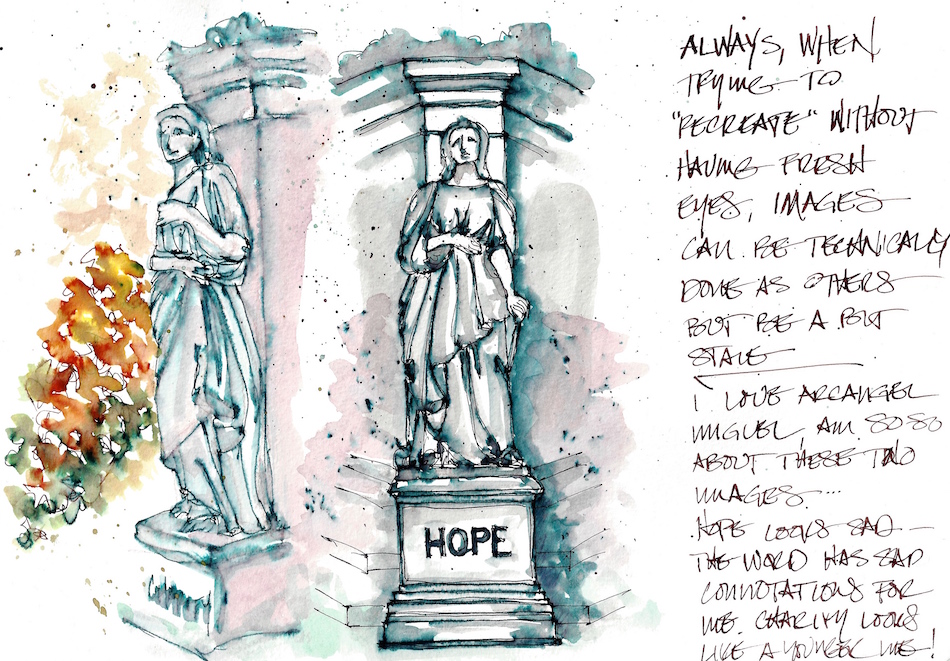 ALWAYS, WHEN
TRYING TO
"RECREATE" WITHOUT
HAVING FRESH
EYES, IMAGES
CAN BE TECHNICALLY
DONE AS OTHERS
BUT BE A BUT
STALE
I LOVE ARCANGEL
MIGUEL, AM SO SO
ABOUT THESE TWO
IMAGES....
HOPE LOOKS SAD -
THE WORD HAS SAD
CONNOTATIONS FOR
ME. CHARITY LOOKS
LIKE A YOUNGER ME!
HOPE